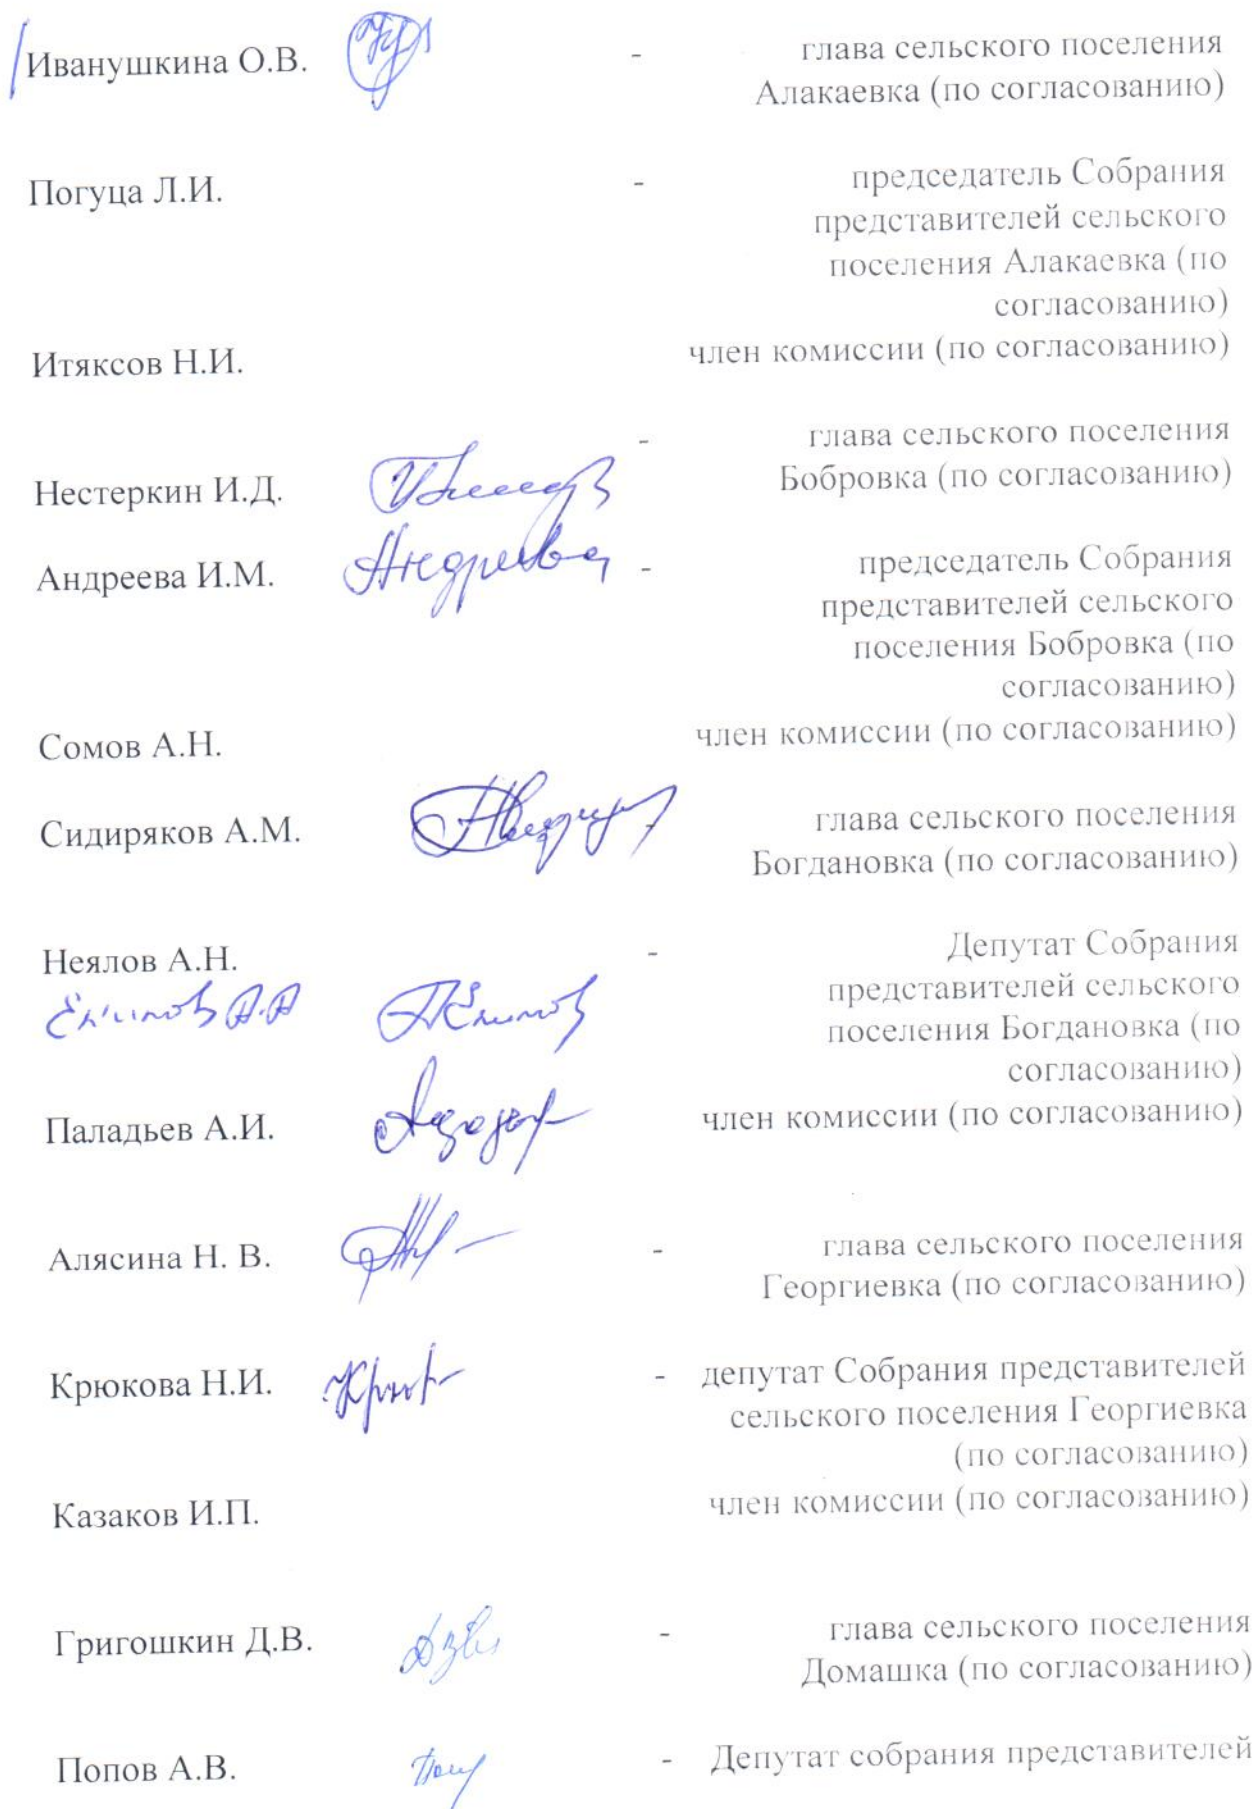 Иванушкина О.В. - глава сельского поселения
Алакаевка (по согласованию)
Погуца Л.И. - председатель Собрания
представителей сельского
поселения Алакаевка (по
согласованию)
Итяксов Н.И. член комиссии (по согласованию)
- глава сельского поселения
Нестеркин И.Д. Бобровка (по согласованию)
Андреева И.М. Андреева - председатель Собрания
представителей сельского
поселения Бобровка (по
согласованию)
Сомов А.Н. член комиссии (по согласованию)
Сидиряков А.М. - глава сельского поселения
Богдановка (по согласованию)
Неялов А.Н. - Депутат Собрания
Екимов А.А представителей сельского
поселения Богдановка (по
согласованию)
Паладьев А.И. член комиссии (по согласованию)
Алясина Н. В. - глава сельского поселения
Георгиевка (по согласованию)
Крюкова Н.И. - депутат Собрания представителей
сельского поселения Георгиевка
(по согласованию)
Казаков И.П. член комиссии (по согласованию)
Григошкин Д.В. - глава сельского поселения
Домашка (по согласованию)
Попов А.В. - Депутат собрания представителей